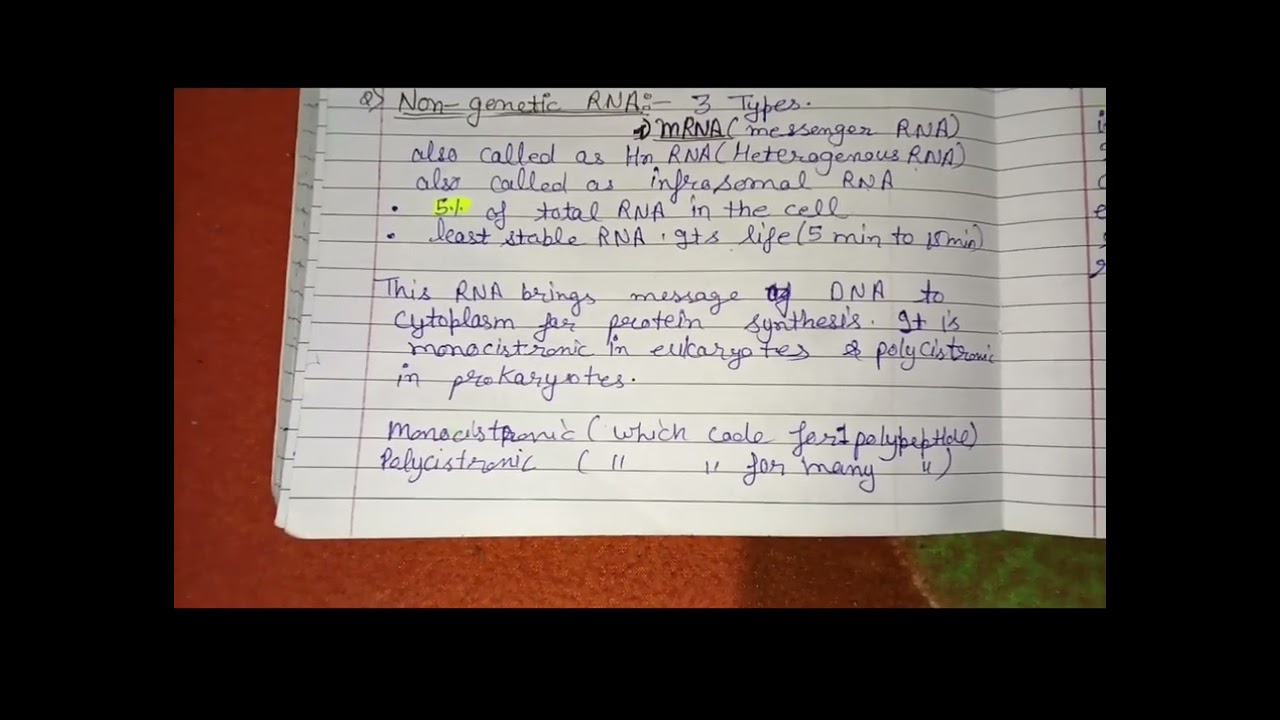 2) Non-genetic RNA:- 3 Types.
1) mRNA (messenger RNA)
also called as Hn RNA (Heterogenous RNA)
also called as infrasomal RNA
• 5% of total RNA in the cell
• least stable RNA. Its life (5 min to 15 min)
This RNA brings message of DNA to
cytoplasm for protein synthesis. It is
monocistronic in eukaryotes & polycistronic
in prokaryotes.
Monocistronic (which code for 1 polypeptide)
Polycistronic ( " " for many " )